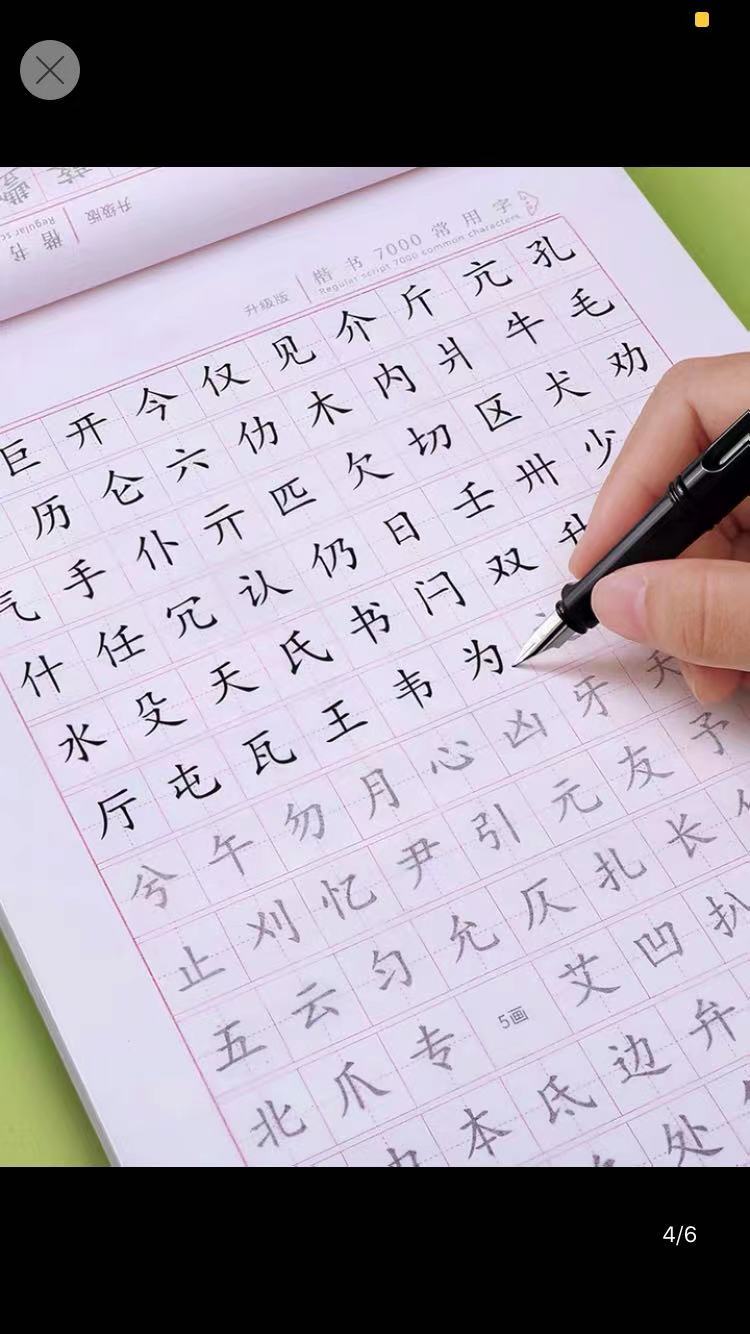 升级版 楷书7000常用字
Regular script 7000 common characters
升级版 楷书
巨 开 今 仅 见 介 斤 亢 孔
历 仑 六 仂 木 内 爿 牛 毛
气 手 仆 亓 匹 欠 切 区 犬 劝
什 任 冗 认 仍 日 壬 卅 少
水 殳 天 氏 书 闩 双 升
厅 屯 瓦 王 韦 为
兮 午 勿 月 心 凶 牙 夭
止 刈 忆 尹 引 元 友 予
五 云 匀 允 仄 扎 长
北 爪 专 5画 艾 凹 扒
本 氐 边 弁
处
4/6